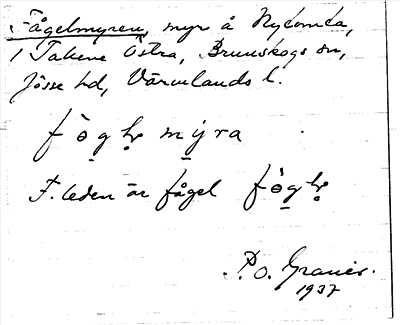 Fågelmyren, myr å Nytomta,
i Takene Östra, Brunskogs sn,
Jösse hd, Värmlands l.
fògl̥ my̠ra
F. leden är fågel fògl̥
P.O. Granér.
1937